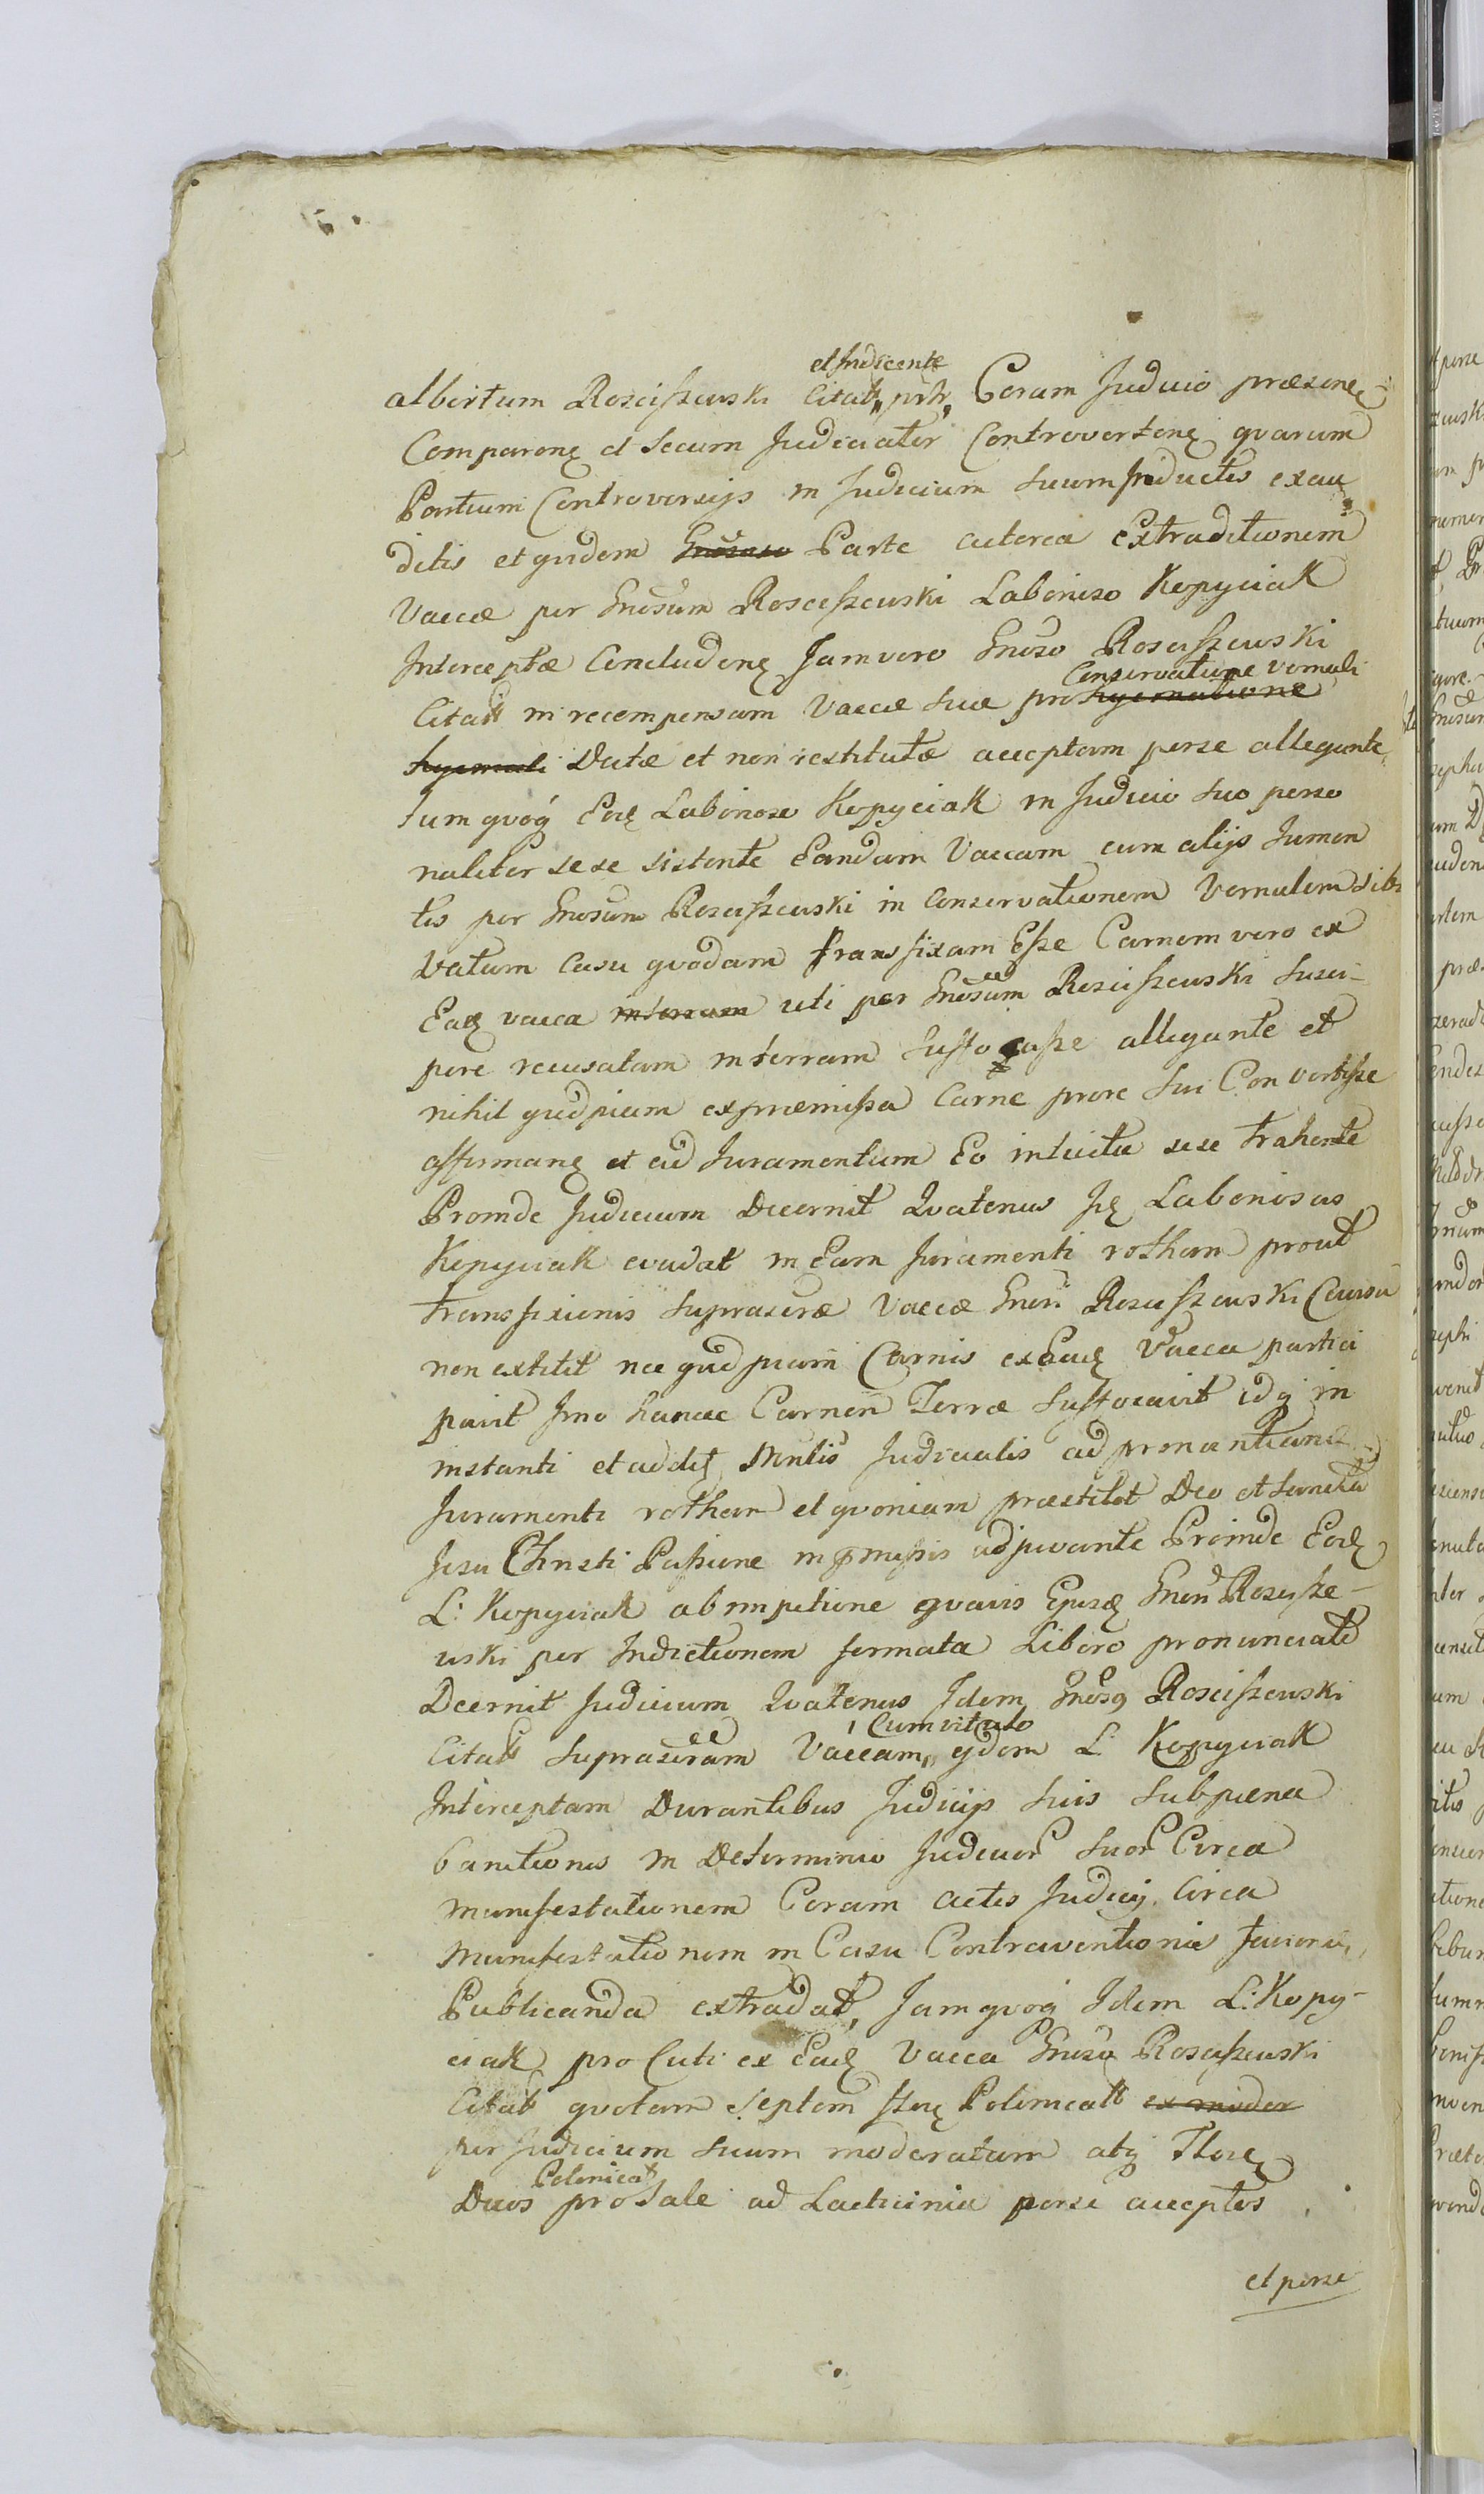 et Indicente
albertum Roscißewski Citat, prtr, Coram Judicio præsene
Comparone et Secum Judicialiter Controvertene qvarum
Partium Controversijs in Judicium Suum Inductis exau
ditis et qvidem Gnosaso Parte actorea Extraditionem
Vaccæ per Gnosum Roscißewski Laborioso Kopyciak
Interceptæ Concludene Jam vero Gnoso Roscißewski
Conservatione vernali
Citat in recompensam Vaccæ Suæ pro hyematione
hyemali Datæ et non restitutæ acceptam perse allegante
Tum qvoq Eod Laborioso Kopyciak in Judicio Suo perso
naliter sese sistente Eandam Vaccam cum alijs Jumen
tis per Gnosum Roscißewski in Conservationem Vernalem Sibi
Datam Casu qvodam transfixam Eße Carnem vero ex
Ead vacca interram uti per Gnosum Roscißewski Susci-
pere recusatam interram Suffocaße allegante et
nihil qvidpiam expræmißa Carne prore Sui Convertiße
affirmane et ad Juramentum Eo intuitu sese trahente
Proinde Judicium Decernit Qvatenus Id Laboriosus
Kopyciak evadat in Eam Juramenti rotham prout
transfixionis Suprascræ Vaccæ Gnosi Roscißewski Causa
non extitit nec qvidpiam Carnis ex Ead Vacca partici
pavit Imo hancce Carnem Terræ Suffocavit idq in
instanti et addit Mnlis Judicialis ad pronantiane
Juramenti rotham et qvoniam præstitit Deo et Sancta
Jesu Christi Paßione in præmißis adjuvante Proinde Eod
L: Kopyciak ab impetione qvavis Ejusd Gnosi Rosciße-
wski per Indictionem formata Libero pronunciato
Dcernit Judicium Qvatenus Idem Gnosg Roscißewski
Cum vitulo
Citat Suprascram Vaccam, ejdem L: Kopyciak
Interceptam Durantibus Judicijs Suis Subpæna
banitionis in Determinio Judicior Suor Circa
manifestationem Coram actis Judicij Circa
manifestationem in Casu Contraventionis
Publicanda extradat, Jam qvoq Idem L: Kopy-
ciak pro Cuti ex Ead Vacca Gnoso Roscißewski
Citat qvotam Septem flor Polonicalt ex moder
per Judicium Suum moderatam atq Flore
Polonicat
Duos pro Sale ad Lacticinia perse acceptos
et perse